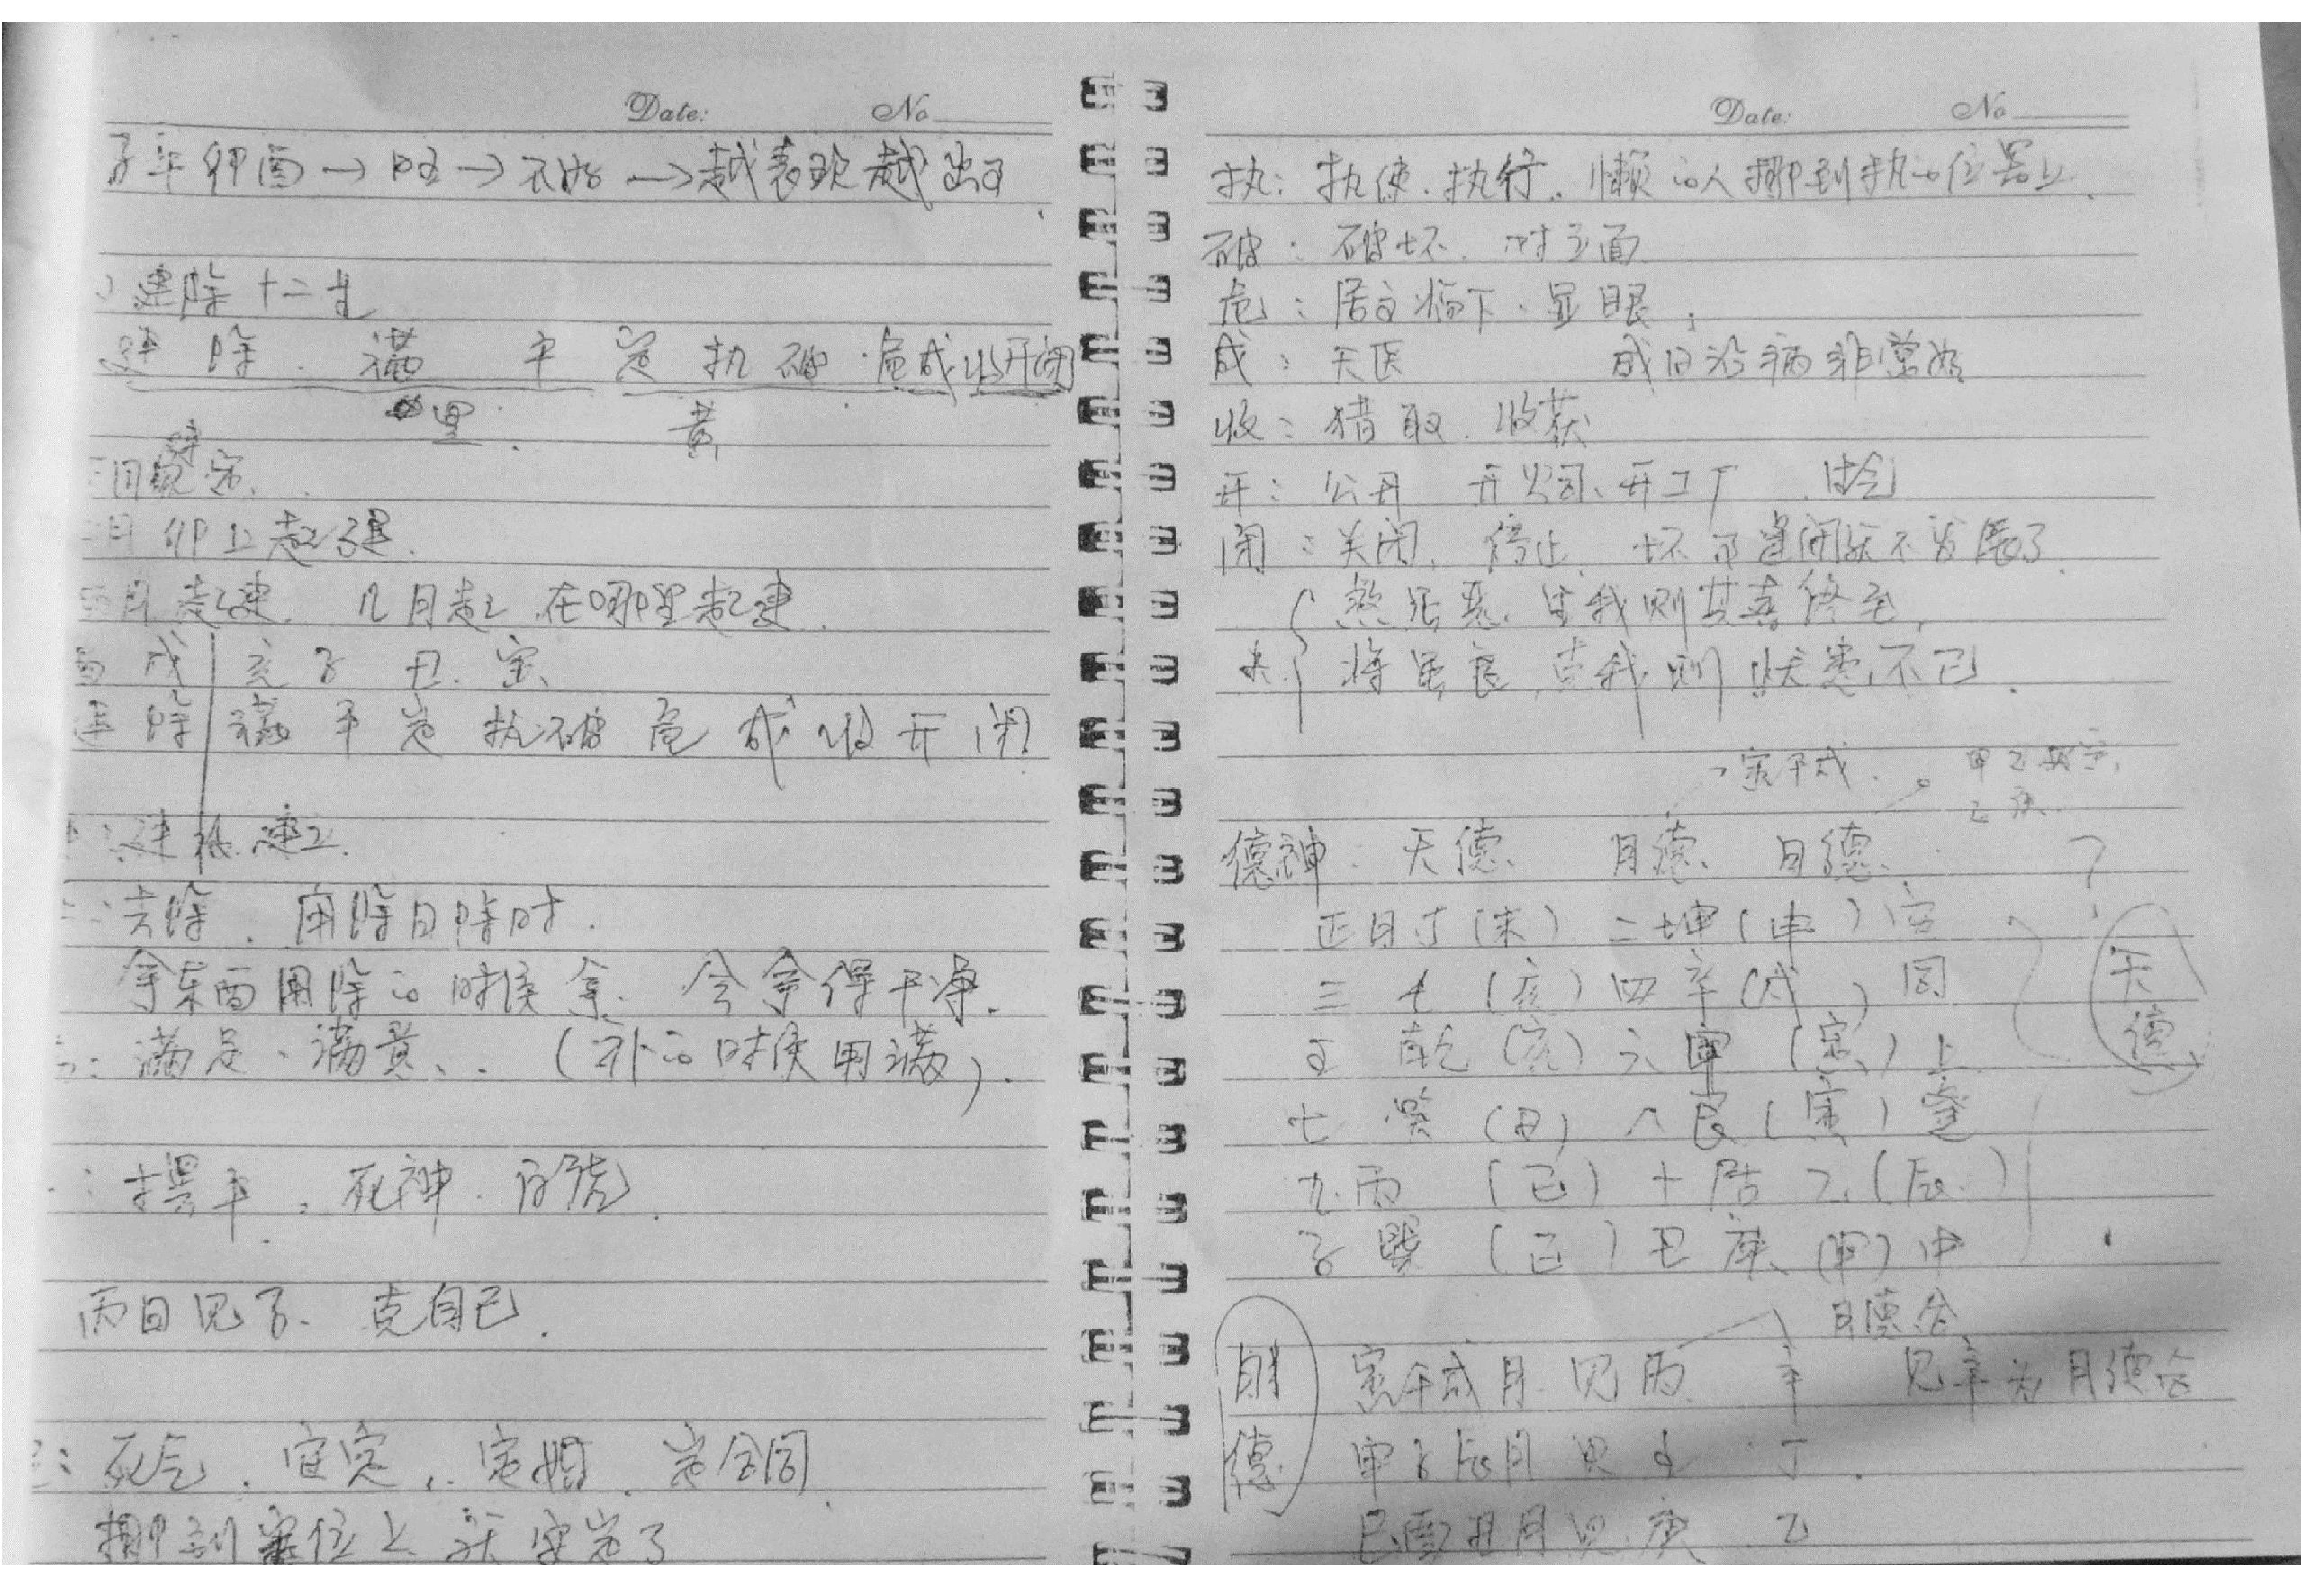 Date: No
子午卯酉→旺→不好→越喜欢越出手
建除十二
建 除 满 平 定 执 破 危成收开闭
黑 黄
月建寅
月卯上起建
酉月起建 几月起 在哪里起建
酉 戌 亥 子 丑 寅
建 除 满 平 定 执 破 危 成 收 开 闭
建 建立
去除 用除日除时
拿东西用除的时候拿 会拿得干净
满足、满贯 (补的时候用满)
摆平 死神 白虎
丙日见子 克自己
死气 定 定婚 定合同
挪到定位上就安定了
Date: No
执: 执使 执行 懒的人挪到执的位置上
破: 破坏 对立面
危: 居高临下、显眼
成: 天医 成日治病非常好
收: 猎取 收获
开: 公开 开公司、开工厂
闭: 关闭 停止 坏事逢闭就不发展了
煞虽恶 生我则其喜终至
将虽良 克我则灾患不已
寅午戌 甲己
德神: 天德、 月德、 日德
正月丁(未) 二坤(申)宫
三壬(亥) 四辛(戌)同
五乾(亥) 六甲(寅)上
天德
七癸(丑) 八艮(寅)逢
九丙(巳) 十居乙(辰)
子巽(巳) 丑庚(申)中
月德合
月德 寅午戌月见丙 辛 见辛为月德合
申子辰月见壬 丁
巳酉丑月见庚 乙